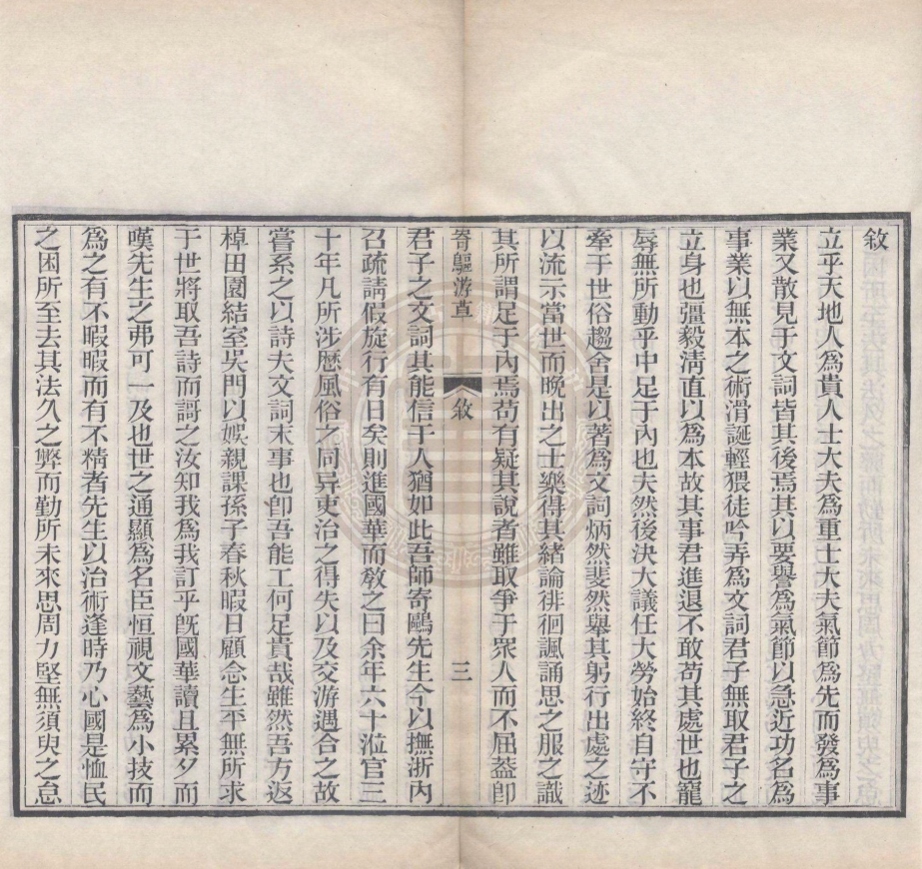 敘
立乎天地人為貴人士大夫為重士大夫氣節為先而發為事
業又散見于文詞皆其後焉其以要譽為氣節以急近功名為
事業以無本之術滑誕輕猥徒吟弄為文詞君子無取君子之
立身也彊毅清直以為本故其事君進退不敢苟其處世也寵
辱無所動乎中足于內也夫然後決大議任大勞始終自守不
牽于世俗趨舍是以著為文詞炳然斐然舉其躬行出處之迹
以流示當世而晚出之士樂得其緒論徘徊諷誦思之服之識
其所謂足于內焉苟有疑其說者雖取爭于眾人而不屈葢卽
寄鷗游草
敘
三
君子之文詞其能信于人猶如此吾師寄鷗先生今以撫浙內
召疏請假旋行有日矣則進國華而敎之曰余年六十涖官三
十年凡所涉歷風俗之同异吏治之得失以及交游遇合之故
嘗系之以詩夫文詞末事也卽吾能工何足貴哉雖然吾方返
棹田園結室吳門以娛親課孫子春秋暇日顧念生平無所求
于世將取吾詩而謌之汝知我為我訂乎旣國華讀且累夕而
嘆先生之弗可一及也世之通顯為名臣恒視文藝為小技而
為之有不暇暇而有不精者先生以治術逢時乃心國是恤民
之困所至去其法久之弊而勤所未來思周力堅無須臾之怠